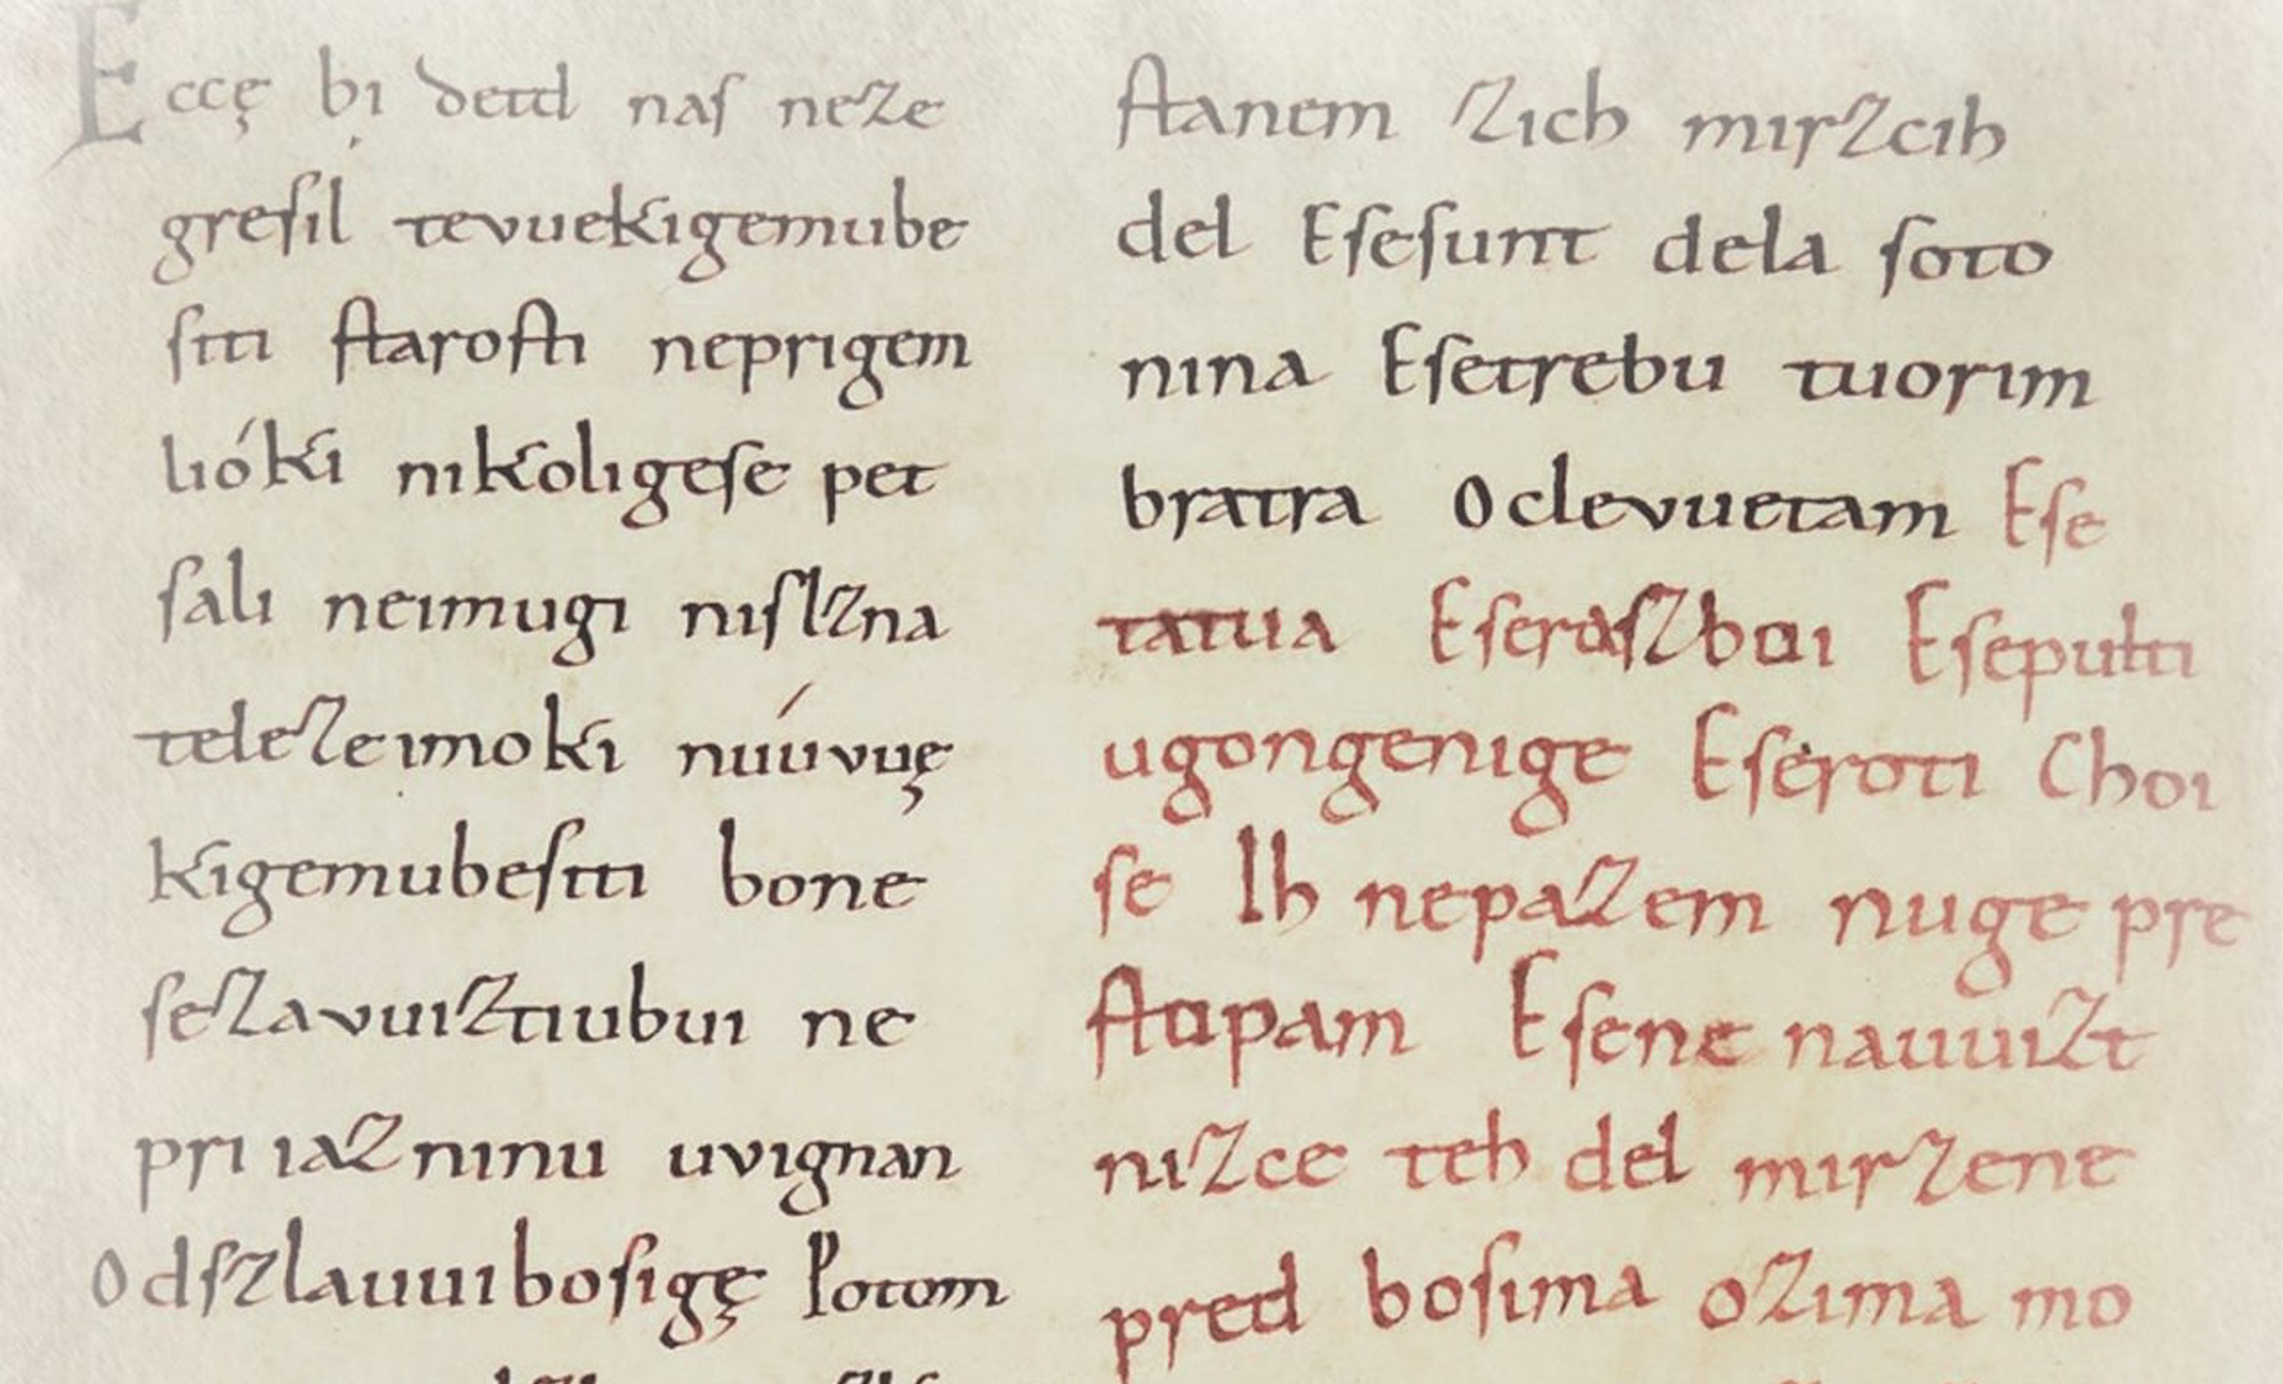 Eccę bi detd naſ neze
greſil tevuekigemube
ſiti ſtaroſti neprigem
lióki nikoligeſe pet
ſali neimugi niſlzna
telezeimoki nuúvuę
kigemubeſiti bone
ſezavuiztiubui ne
priiazninu uvignan
Odſzlauuiboſigę Potom
ſtanem zich mirzcih
del Eſeſunt dela ſoto
nina Eſetrebu tuorim
bratra Oclevuetam Eſe
tatua Eſeraſzboi Eſepulti
ugongenige Eſeroti Choi
ſe Ih nepazem nuge pre
ſtopam Eſene nauuizt
nizce teh del mirzene
pred boſima ozima mo